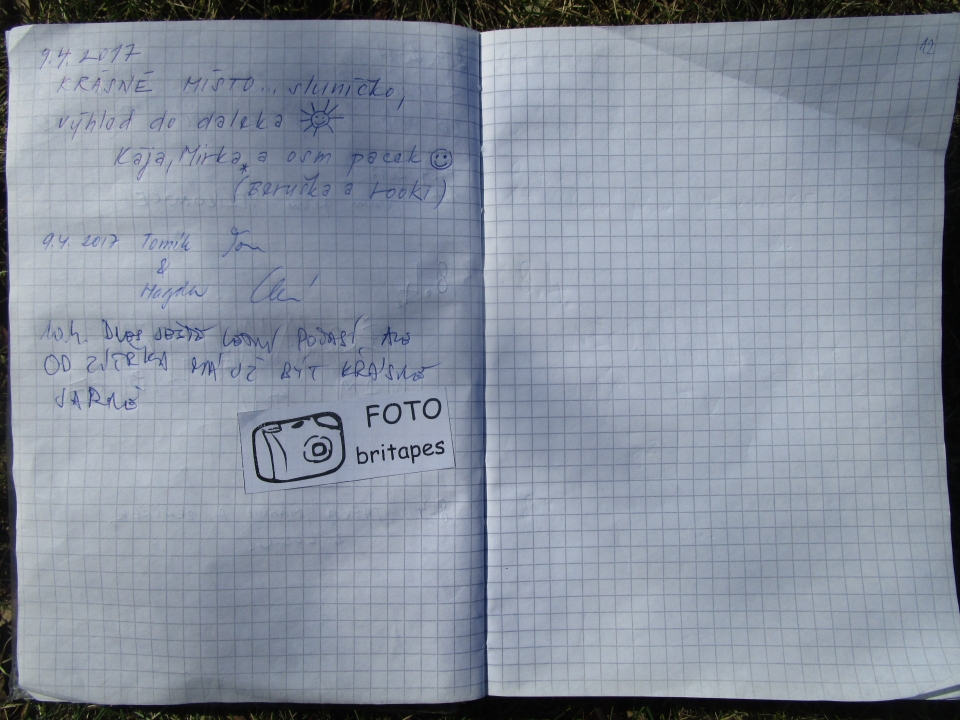 9.4.2017
KRÁSNÉ MÍSTO... sluníčko,
výhled do daleka
Kája, Mirka a osm pacek
(Baruška a rooki)
9.4. 2017 Tomík
&
Magda
10.4. DNES JEŠTĚ LETNÍ POČASÍ, ALE
OD ZÍTŘKA MÁ UŽ BÝT KRÁSNĚ
JARNĚ
FOTO
britapes
12